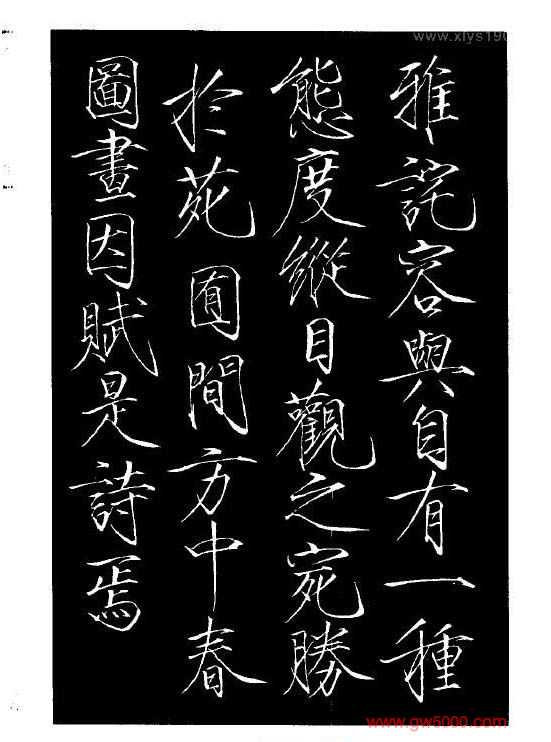 雅詫容與自有一種
態度縱目觀之宛勝
於苑囿間方中春
圖畫因賦是詩焉
www.xlys190
www.gw5000.com